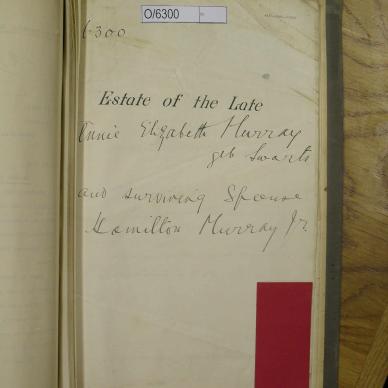 O/6300
6300
Estate of the Late
Annie Elizabeth Murray
geb Swarts
and surviving Spouse
Hamilton Murray Jr.